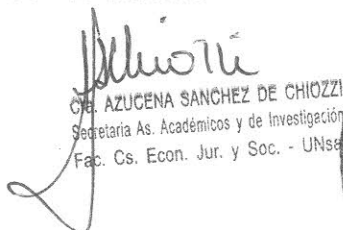 Cra. AZUCENA SANCHEZ DE CHIOZZI
Secretaria As. Académicos y de Investigación
Fac. Cs. Econ. Jur. y Soc. - UNsa